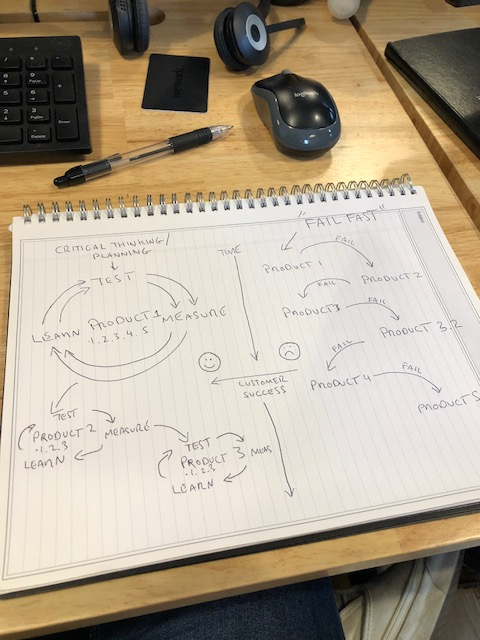 logitech
CRITICAL THINKING/
PLANNING
TEST
LEARN
PRODUCT 1
.1.2.3.4.5
MEASURE
TEST
PRODUCT 2
.1.2.3
LEARN
MEASURE
TEST
PRODUCT 3
.1.2.3
LEARN
MEAS
TIME
CUSTOMER
SUCCESS
"FAIL FAST"
PRODUCT 1
FAIL
PRODUCT 2
FAIL
PRODUCT 3
FAIL
PRODUCT 3.2
FAIL
PRODUCT 4
FAIL
PRODUCT 5